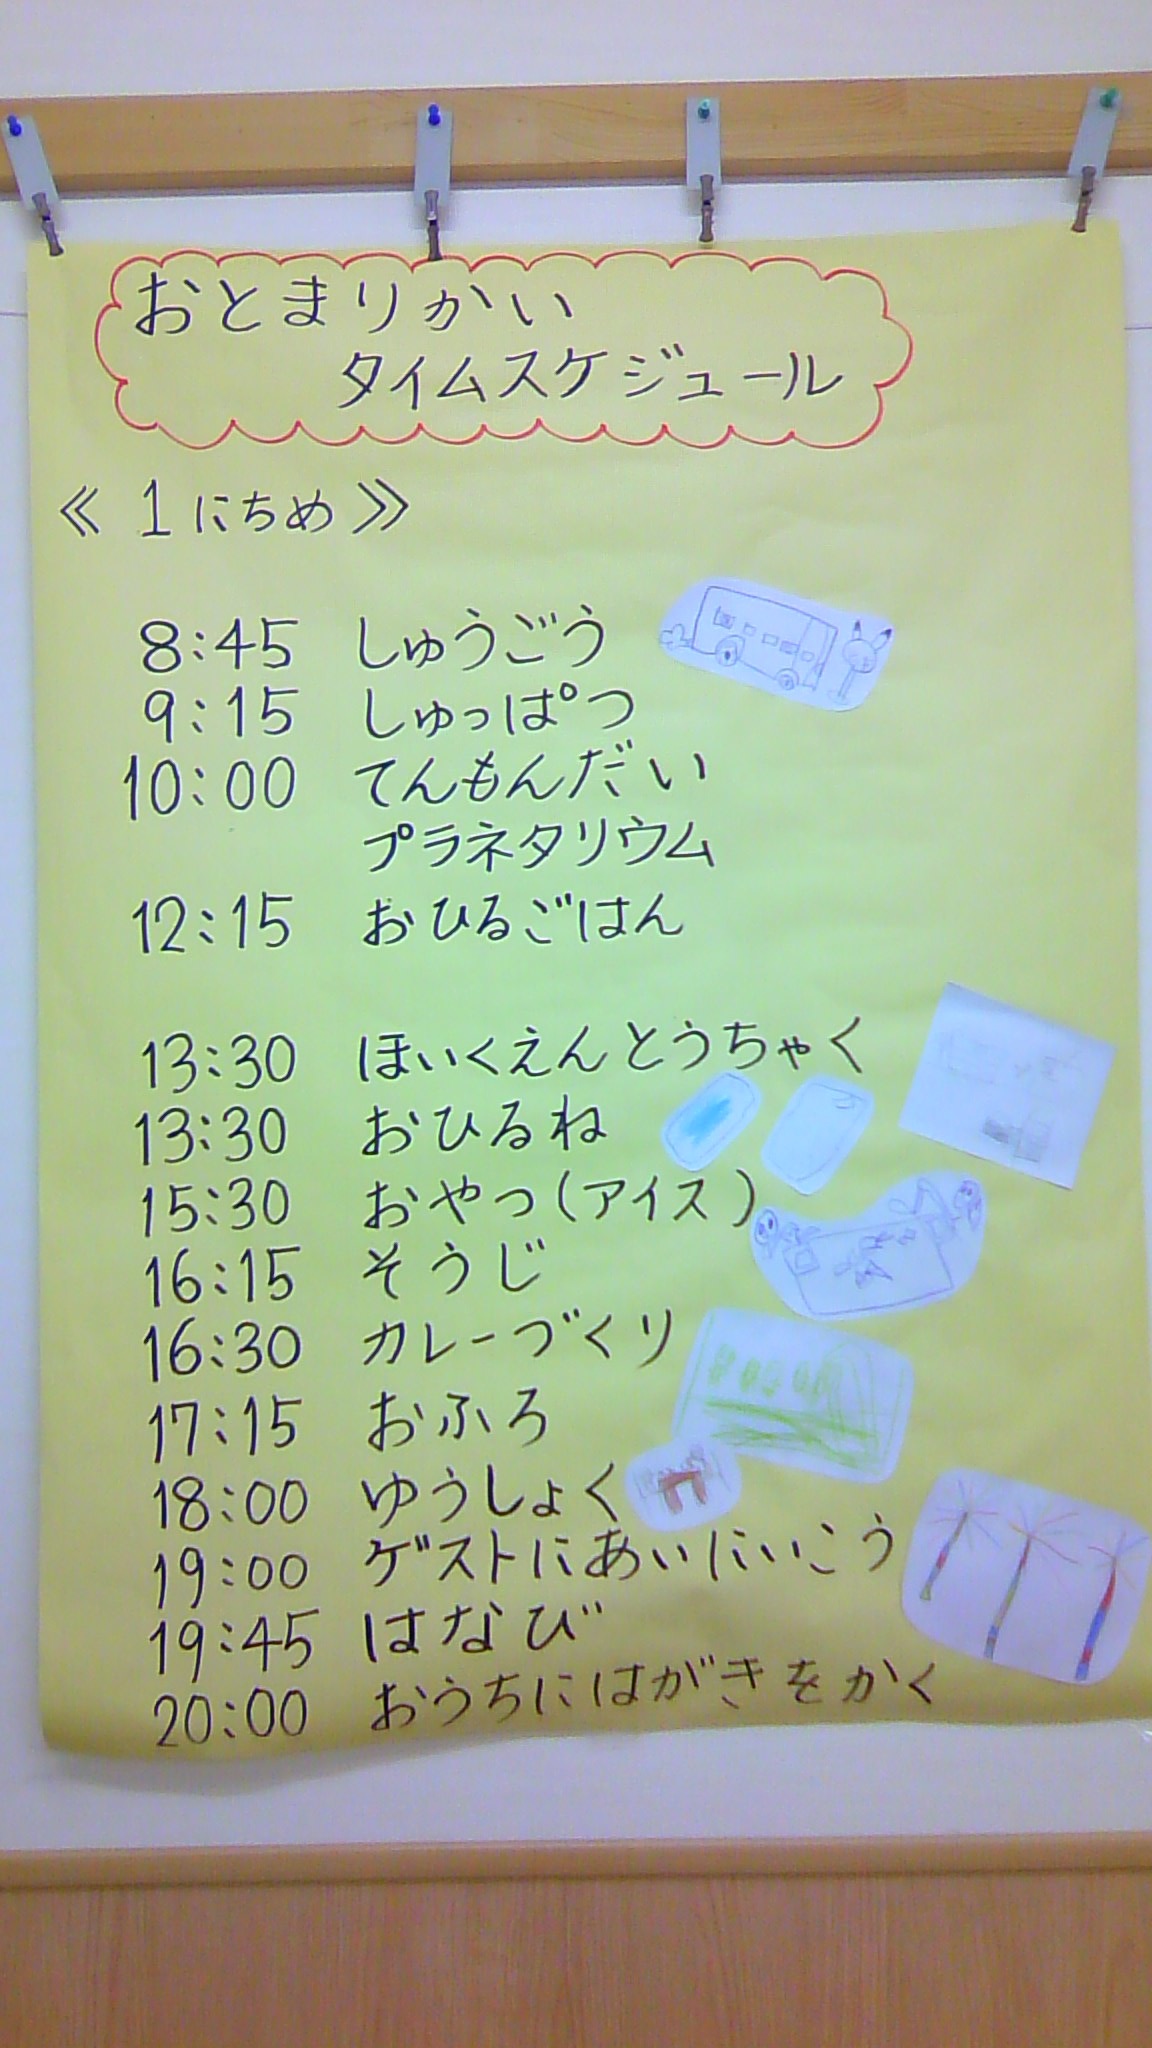 おとまりかい
タイムスケジュール
≪ 1にちめ ≫
8:45 しゅうごう
9:15 しゅっぱつ
10:00 てんもんだい
プラネタリウム
12:15 おひるごはん
13:30 ほいくえんとうちゃく
13:30 おひるね
15:30 おやつ(アイス)
16:15 そうじ
16:30 カレーづくり
17:15 おふろ
18:00 ゆうしょく
19:00 ゲストにあいにいこう
19:45 はなび
20:00 おうちにはがきをかく